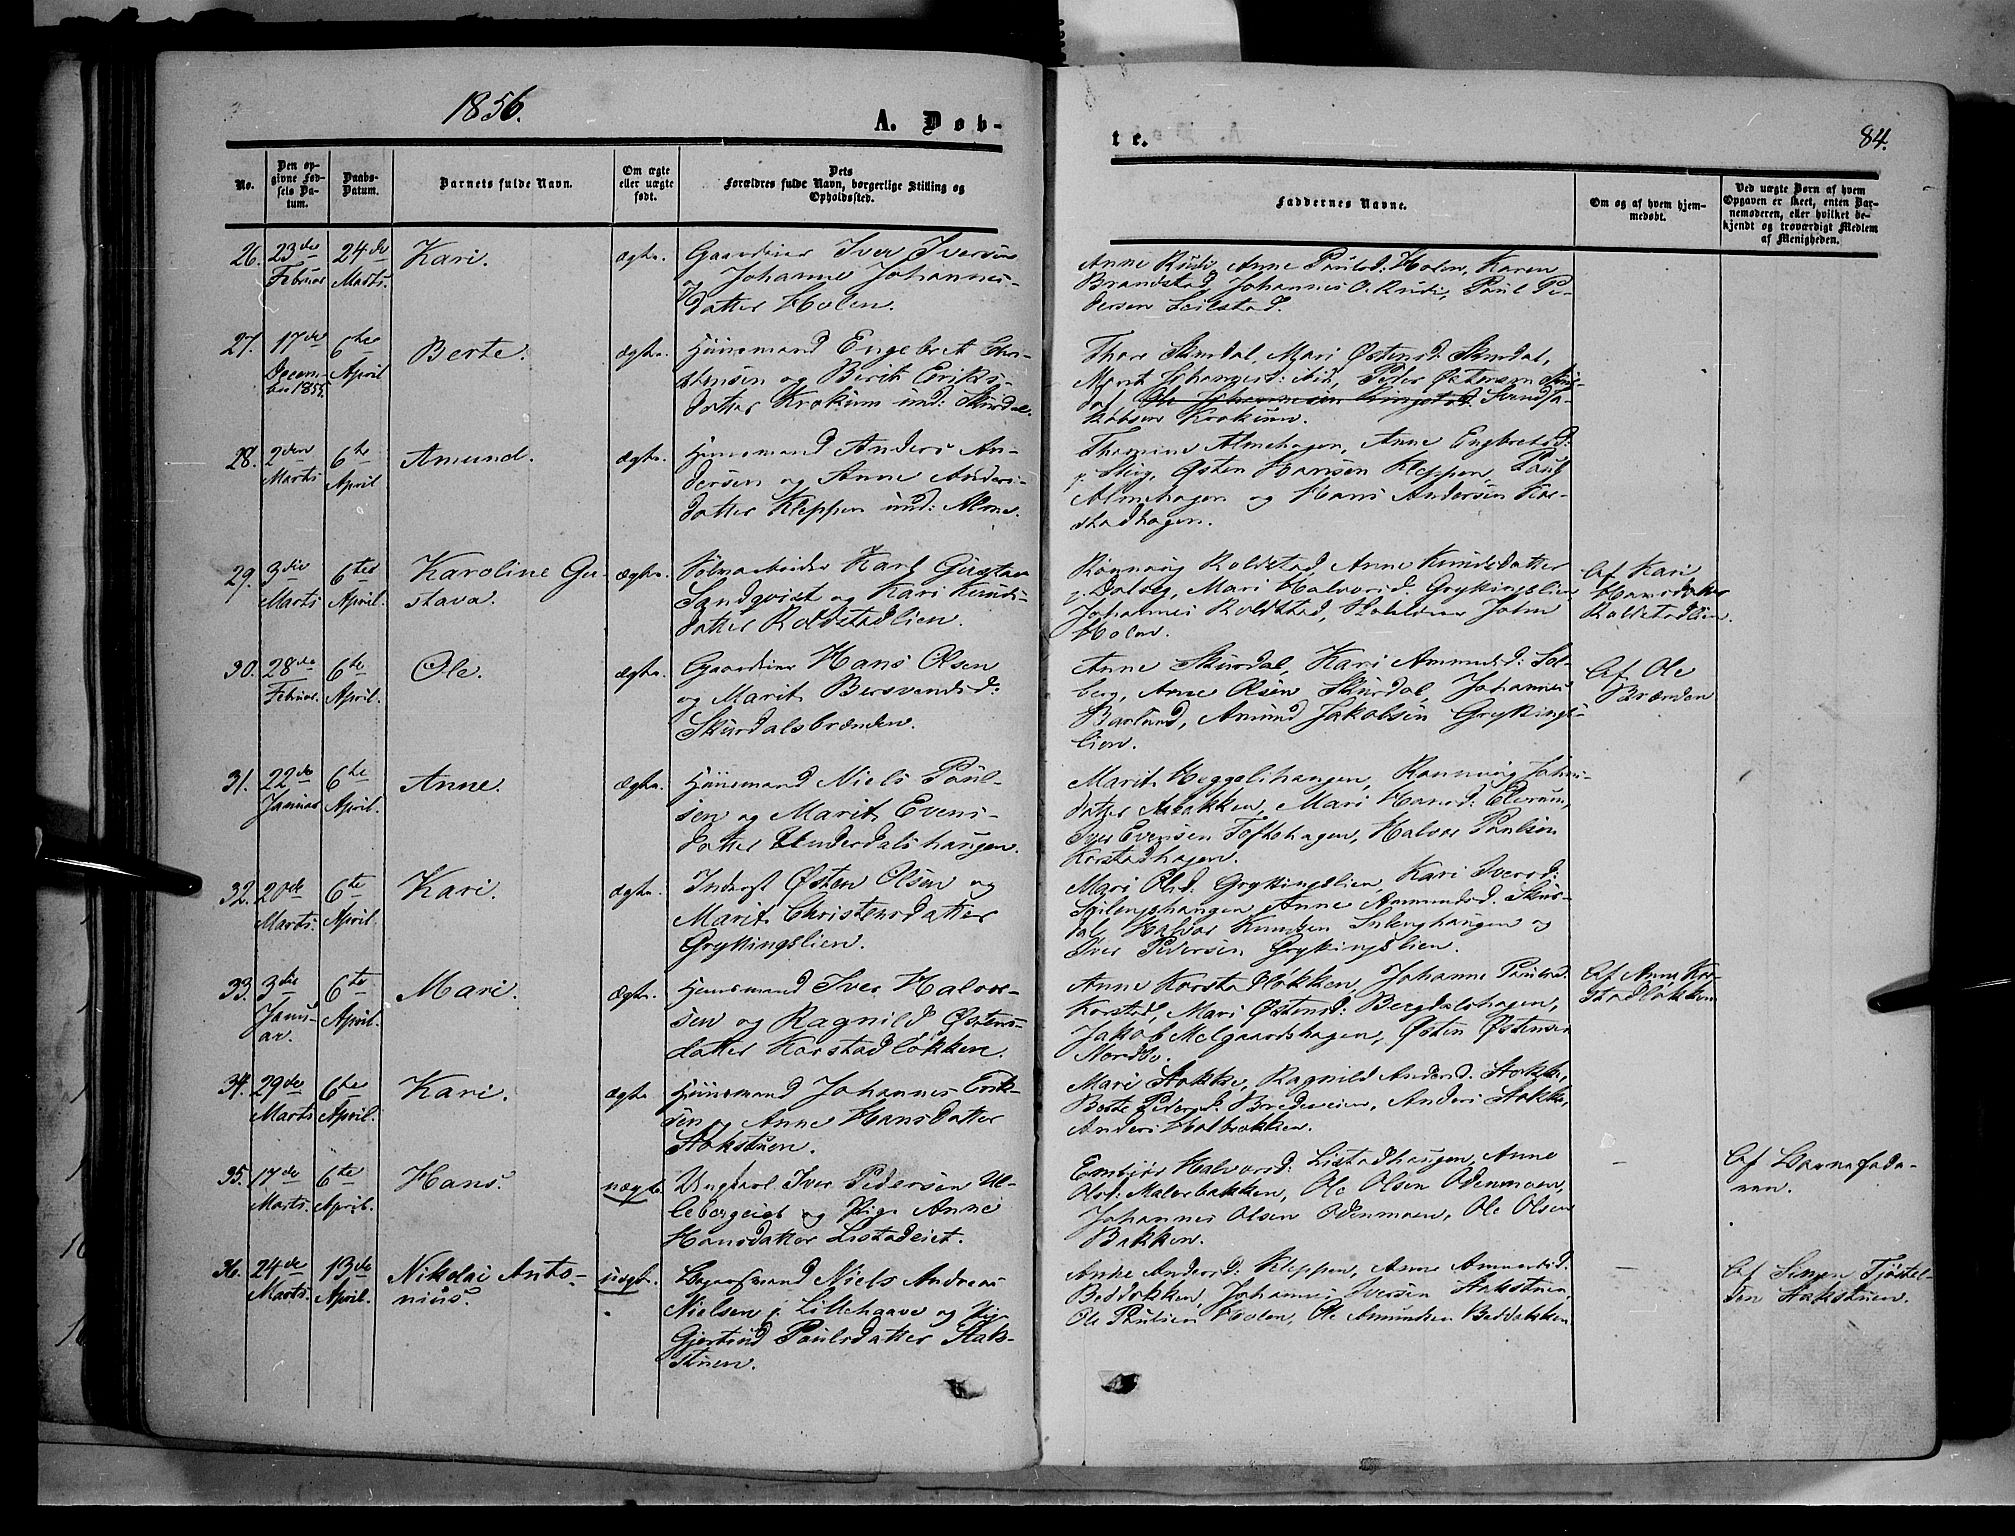 1856.
A. Døb-
te.
84.
No.
Den op-
givne Fød-
sels Da-
tum.
Daabs-
Datum.
Barnets fulde Navn.
Om ægte
eller uægte
født.
Dets
Forældres fulde Navn, borgerlige Stilling og
Opholdssted.
Faddernes Navne.
Om og af hvem hjem-
medøbt.
Ved uægte Børn af hvem
Opgaven er skeet, enten Bar-
nemoderen, eller hvilket be-
kjendt og troværdigt Medlem
af Menigheden.
26. 23de Februar 24de Marts. Kari. ægte. Gaardbrr Iver Iversen
og Johanne Johannes-
datter Holen.
Anne Rudi, Anne Paulsd: Holen, Karen
Brandstad, Johannes O. Rudi, Paul Pe-
dersen Seilstad.
27. 17de Decem-
ber 1855. 6te April Berte. ægte. Huusmand Engebret Chri-
stensen og Berit Eriks-
datter Krokum und: Skurdal.
Thore Skurdal, Mari Østensd: Skurdal,
Marit Johannesd: ibid, Peder Østensen Skur-
dal, Ole Johannesen
Krokum.
28. 2den Marts 6te April Amund. ægte. Huusmand Anders An-
dersen og Anne Anders-
datter Kleppen und: Alme.
Thomine Almehagen, Anne Engbretsd:
p. Skeg, Østen Hansen Kleppen, Paul
Almehagen og Hans Andersen Kor-
stadhagen.
29. 3die Marts 6te April. Karoline Gu-
stava. ægte. Sølvarbeider Karl Gustav
Sandqvist og Kari Knuds-
datter Roldstadlien.
Rønnaug Roldstad, Anne Knudsdatter
Dalseg, Mari Halvorsd. Grytkingslien
Johannes Roldstad, John
Holen.
Af Kari
Hansdatter
Roldstadlien.
30. 28de Februar. 6te April. Ole. ægte. Gaardbrr Hans Olsen
og Marit Bersvendsd:
Skurdalsbrænden.
Anne Skurdal, Kari Amundsd: Sol-
berg, Anne Olsen Skurdal, Johannes
Barlund, Amund Jakobsen Grytkings-
lien.
Af Ole
Brænden
31. 22de Januar 6te April. Anne. ægte. Huusmand Niels Paul-
sen og Marit Evens-
datter Underdalshaugen.
Marit Heggelihaugen, Rønnaug Johns-
datter Aabakken, Mari Hansd:
Iver Evensen Toftehagen, Halvor Paulsen
Korstadhagen.
32. 20de Marts. 6te April. Kari. ægte. Inderst Østen Olsen og
Marit Christensdatter
Grytkingslien.
Mari Olsd: Grytkingslien, Kari Iversd:
Anne Amundsd. Skur-
dal, Halvor Knudsen og
Iver Pedersen Grytkingslien.
33. 3die Janu-
ar. 6te April. Mari. Ægte. Huusmand Iver Halvor-
sen og Ragnild Østens-
datter Korstadløkken.
Anne Korstadløkken, Johanne Paulsd.
Korstad, Mari Østensd: Bergdalshagen,
Jakob Melgaardshagen, Østen Østensen
Nordbo.
Af Anne Kor-
stadløkken
34. 29de Marts 6te April. Kari. ægte. Huusmand Johannes Erik-
sen og Anne Hansdatter
Stokstuen.
Mari Stokke, Ragnild Andersd. Stokke,
Berte Pedersd. Bredeveien, Anders Stokke,
Anders Holbrækken.
35. 17de Marts. 6te April. Hans. uægte. Ungkarl Iver Pedersen Ul-
lebergeiet og Pige Anne
Hansdatter Listadeiet.
Embjør Halvorsd: Listadhaugen, Anne
Olsd: Malerbakken, Ole Olsen Odenmoen,
Johannes Olsen Odenmoen, Ole Olsen
Bakken.
—
Af Barnefade-
ren.
36. 24de Marts. 13de April. Nikolai Anto-
nius. uægte. Niels Andreas
Nielsen p. Lillehgave og Pige
Gjertrud Paulsdatter Stok-
stuen.
Anne Andersd: Kleppen, Anne Amundsd.
Johannes Iversen Stokstuen,
Ole Paulsen Holen, Ole Amundsen
—
Af Simen Tjøstel-
sen Stokstuen.